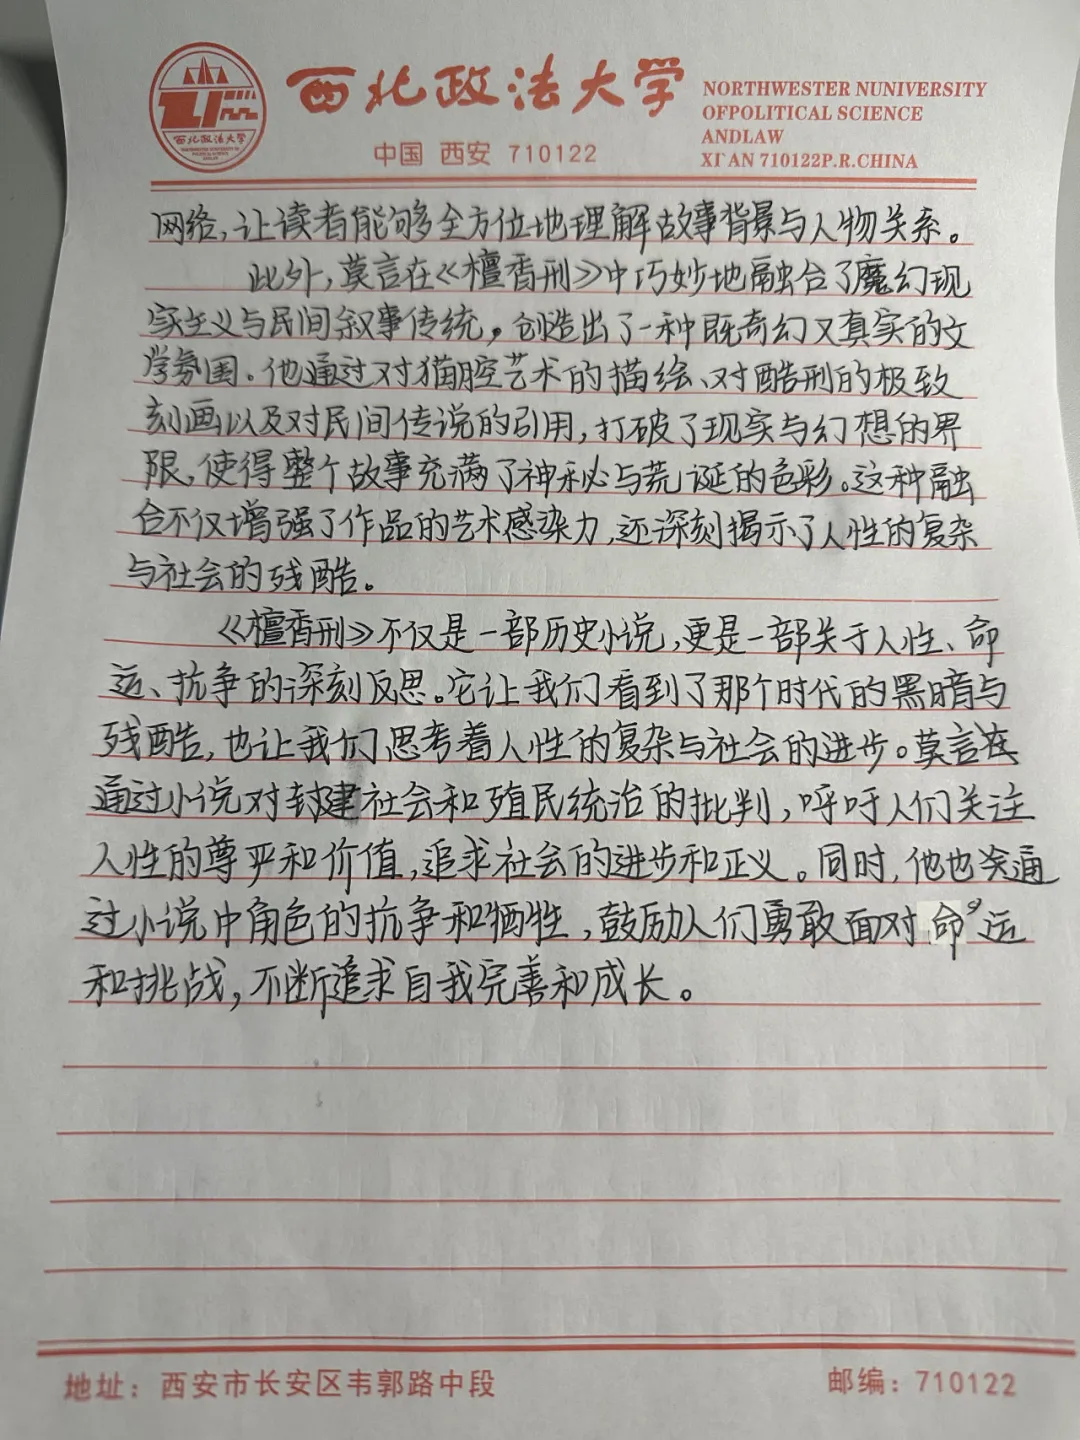 西北政法大学
中国 西安 710122
NORTHWESTER NUNIVERSITY
OFPOLITICAL SCIENCE
ANDLAW
XI' AN 710122P.R.CHINA
西北政法大学
网络,让读者能够全方位地理解故事背景与人物关系。
此外,莫言在《檀香刑》中巧妙地融合了魔幻现
实主义与民间叙事传统,创造出了一种既奇幻又真实的文
学氛围。他通过对猫腔艺术的描绘、对酷刑的极致
刻画以及对民间传说的引用,打破了现实与幻想的界
限,使得整个故事充满了神秘与荒诞的色彩。这种融
合不仅增强了作品的艺术感染力,还深刻揭示了人性的复杂
与社会的残酷。
《檀香刑》不仅是一部历史小说,更是一部关于人性、命
运、抗争的深刻反思。它让我们看到了那个时代的黑暗与
残酷,也让我们思考着人性的复杂与社会的进步。莫言在
通过小说对封建社会和殖民统治的批判,呼吁人们关注
人性的尊严和价值,追求社会的进步和正义。同时,他也通
过小说中角色的抗争和牺牲,鼓励人们勇敢面对命运
和挑战,不断追求自我完善和成长。
地址:西安市长安区韦郭路中段
邮编:710122